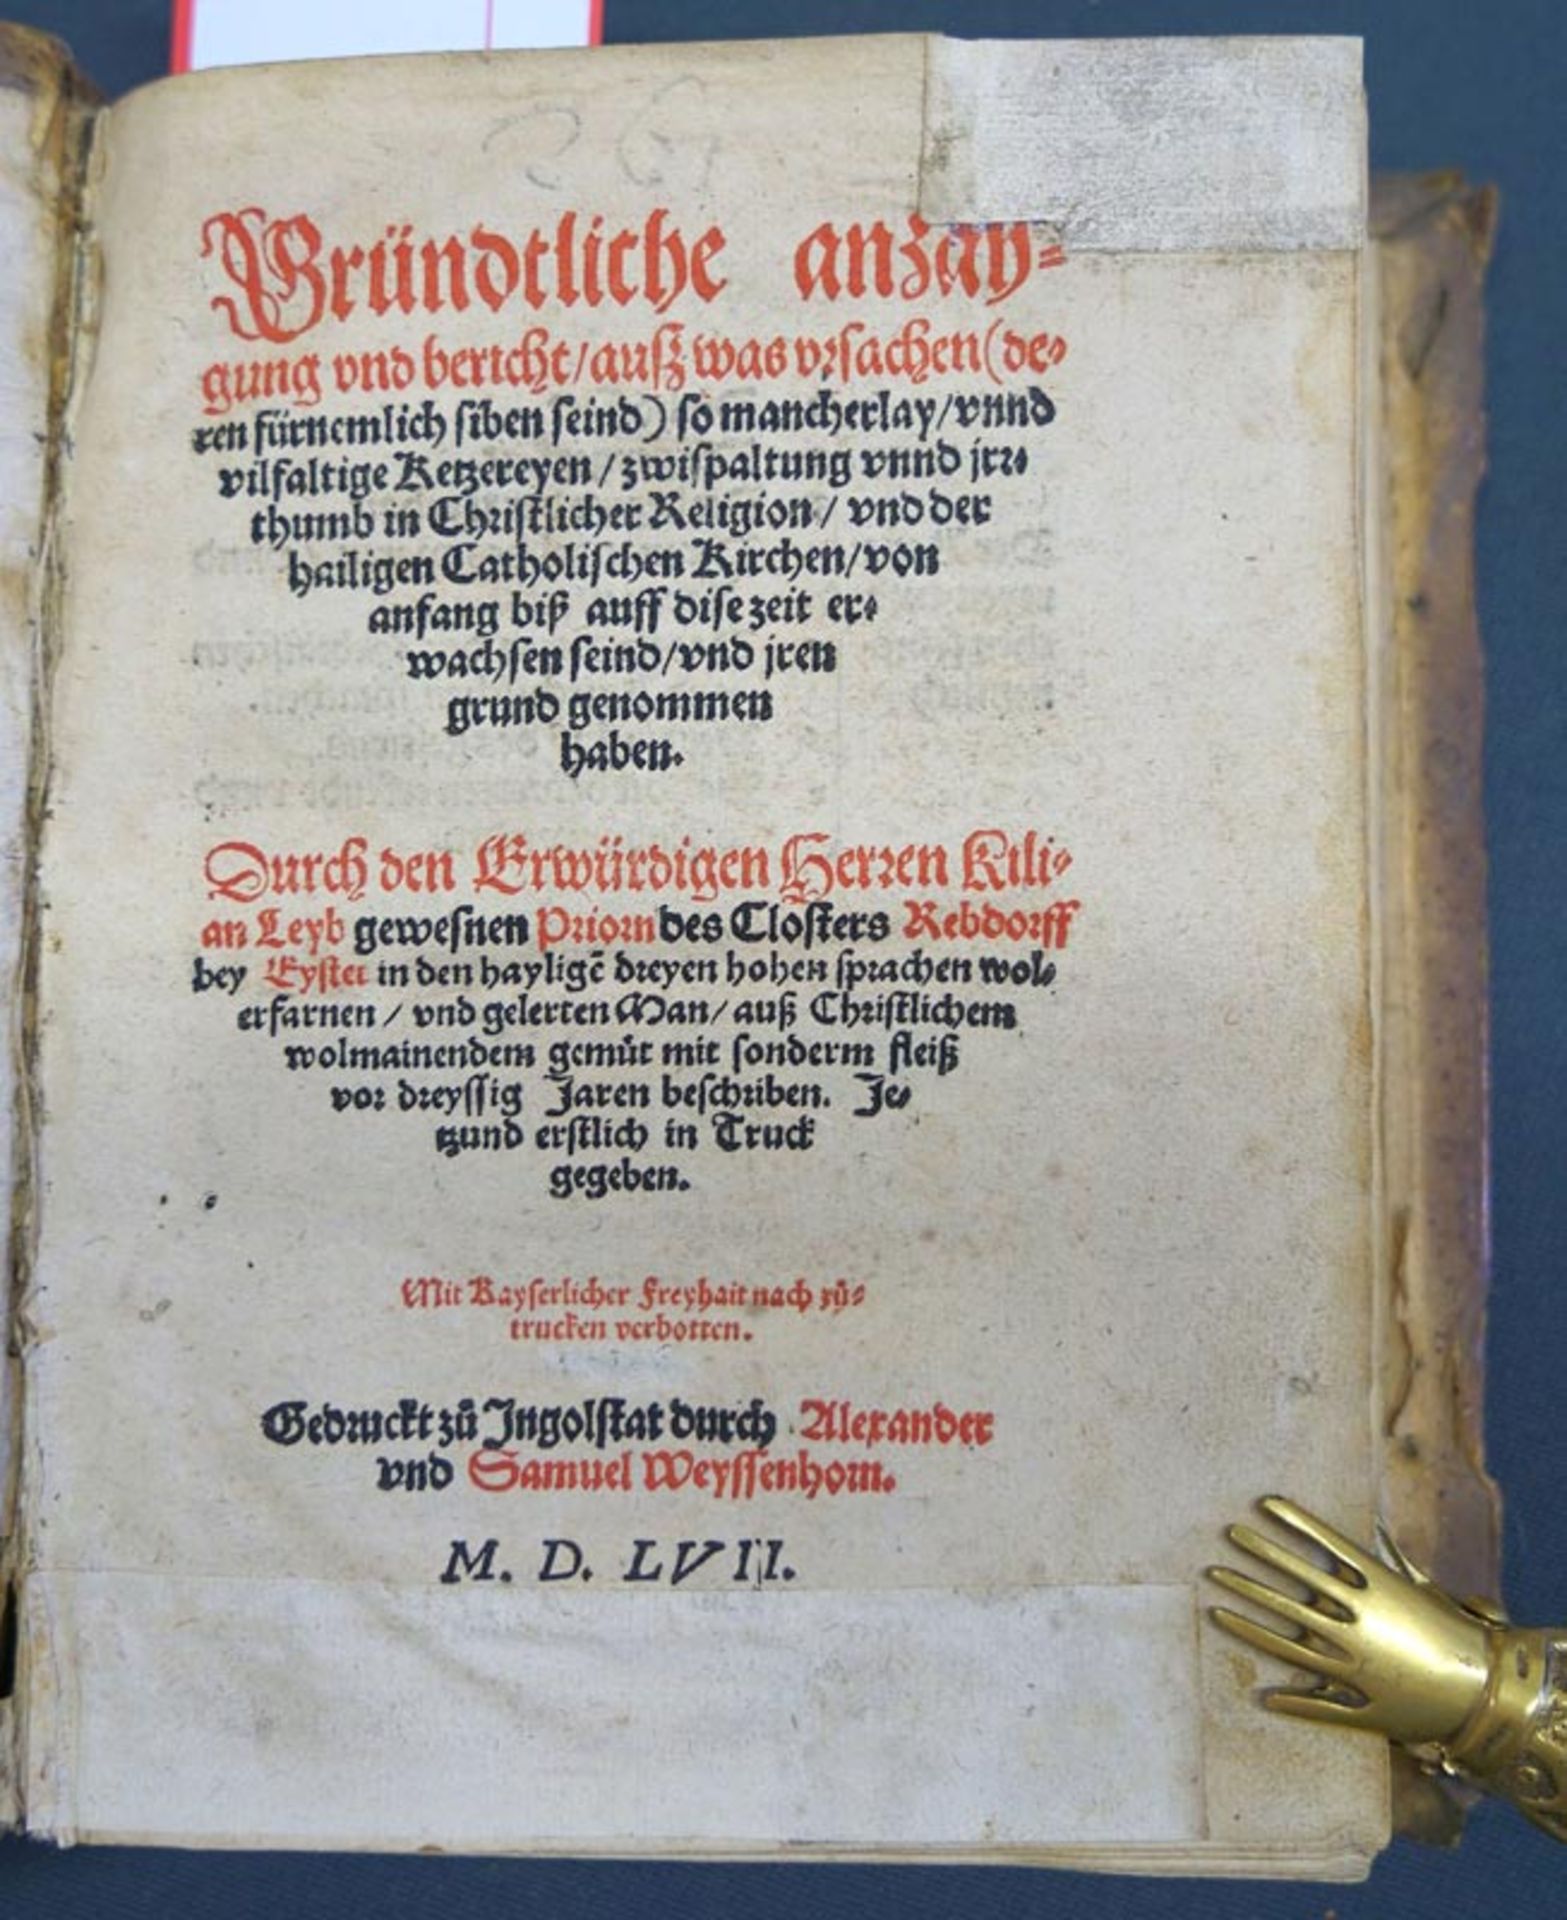 Gründtliche anzay⸗
gung vnd bericht/auß was vrsachen(de⸗
ren fürnemlich siben seind) so mancherlay/vnnd
vilfaltige Ketzereyen/zwispaltung vnnd jrr⸗
thumb in Christlicher Religion/ vnd der
hailigen Catholischen Kirchen/von
anfang biß auff dise zeit er⸗
wachsen seind/vnd jren
grund genommen
haben.
Durch den Erwürdigen Herren Kili⸗
an Leyb gewesnen Priorn des Closters Rebdorff
bey Eystet in den hayligē dreyen hohen sprachen wol⸗
erfarnen/ vnd gelerten Man/ auß Christlichem
wolmainendem gemüt mit sonderm fleiß
vor dreyssig Jaren beschriben. Je⸗
tzund erstlich in Truck
gegeben.
Mit Kayserlicher Freyhait nach zů⸗
trucken verbotten.
Gedruckt zů Ingolstat durch Alexander
vnd Samuel Weyssenhorn.
M. D. LVII.